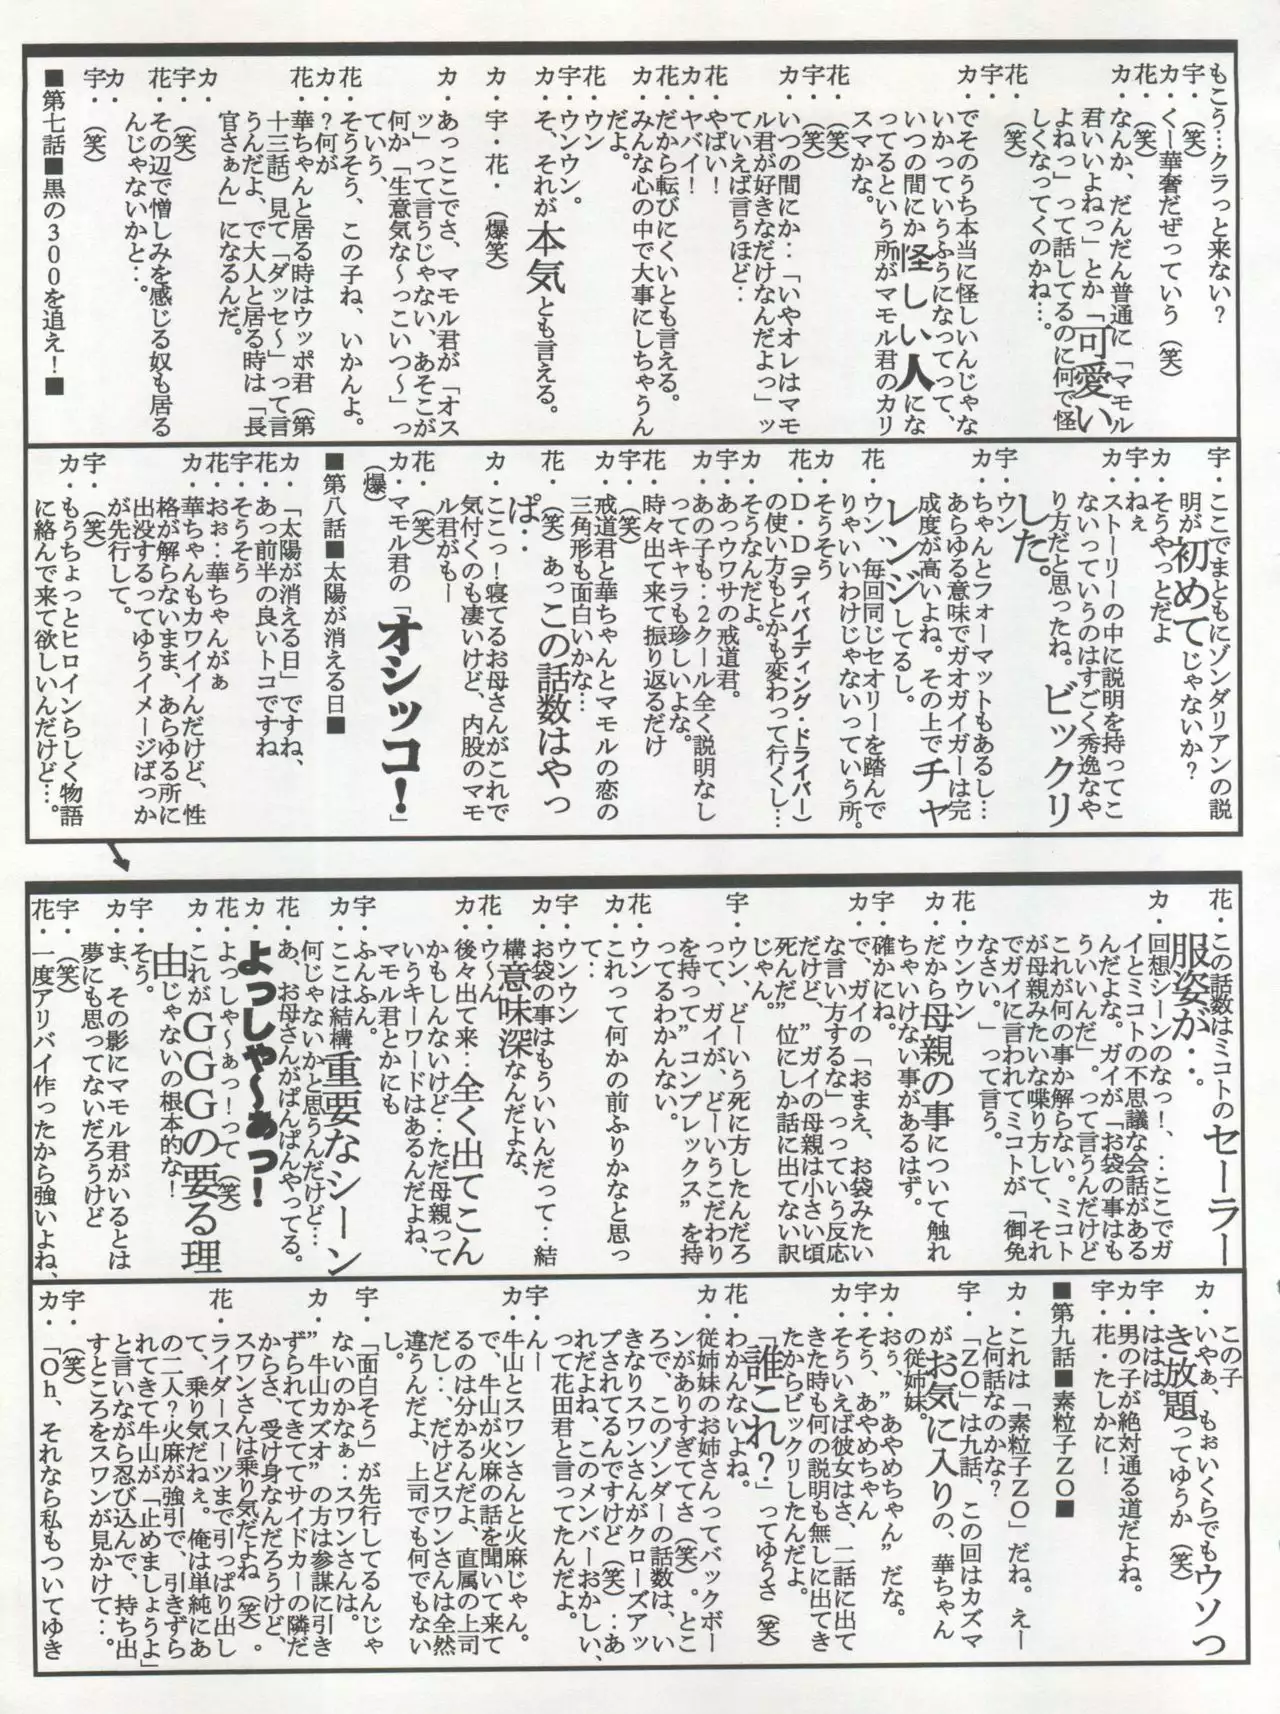 もこう…クラっと来ない？
宇・（笑）
カ・くー華奢だぜっていう（笑）
花・（笑）
カ・なんか、だんだん普通に「マモル
君いいよねっ」とか「可愛い
よねっ」って話してるのに何で怪
しくなってくのかね…。
花・（笑）
宇・
カ・でそのうち本当に怪しいんじゃな
いかっていうふうになってって、
いつの間にか怪しい人にな
ってるという所がマモル君のカリ
スマかな。
花・（笑）
宇・（笑）
カ・いつの間にか‥「いやオレはマモ
ル君が好きなだけなんだよっ」ッ
ていえば言うほど‥
花・やばい！
カ・ヤバイ！
花・だから転びにくいとも言える。
カ・みんな心の中で大事にしちゃうん
だよ。
花・ウン
宇・ウンウン。
カ・そ、それが本気とも言える。
カ・宇・花・（爆笑）
カ・あっここでさ、マモル君が「オス
ッ」って言うじゃない、あそこが
何か「生意気な～っこいつ～」っ
ていう、
花・そうそう、この子ね、いかんよ。
カ・？何が
花・華ちゃんと居る時はウッポ君（第
十三話）見て「ダッセ～」って言
うんだよ、で大人と居る時は「長
官さぁん」になるんだ。
カ・
宇・（笑）
花・その辺で憎しみを感じる奴も居る
んじゃないかと…。
カ・
宇・（笑）
■第七話■黒の300を追え！■
宇・ここでまともにゾンダリアンの説
明が初めてじゃないか？
カ・そうやっとだよ
宇・ねぇ
カ・ストーリーの中に説明を持ってこ
ないっていうのはすごく秀逸なや
り方だと思ったね。ビックリ
した。
宇・ウン
カ・ちゃんとフォーマットもあるし…
あらゆる意味でガオガイガーは完
成度が高いよね。その上でチャ
レンジしてるし。
花・ウン、毎回同じセオリーを踏んで
りゃいいわけじゃないっていう所。
カ・そうそう
花・D・D（ディバイディング・ドライバー）
の使い方もとかも変わって行くし…
カ・そうなんだよ。
宇・あっウワサの戒道君。
カ・あの子も‥2クール全く説明なし
ってキャラも珍しいよな。
花・時々出て来て振り返るだけ
宇・（笑）
カ・戒道君と華ちゃんとマモルの恋の
三角形も面白いかな…
花・（笑）あっこの話数はやっ
ぱ‥
カ・ここっ！寝てるお母さんがこれで
気付くのも凄いけど、内股のマモ
ル君がもー
花・（笑）
カ・マモル君の「オシッコ！」
（爆）
■第八話■太陽が消える日■
カ・「太陽が消える日」ですね、
花・あっ前半の良いトコですね
宇・そうそう
花・おぉ‥華ちゃんがぁ
カ・華ちゃんもカワイイんだけど、性
格が解らないまま、あらゆる所に
出没するってゆうイメージばっか
が先行して。
宇・（笑）
カ・もうちょっとヒロインらしく物語
に絡んで来て欲しいんだけど…。
花・この話数はミコトのセーラー
服姿が‥。
カ・回想シーンのなっ！、‥ここでガ
イとミコトの不思議な会話がある
んだよな。ガイが、「お袋の事はも
ういいんだ」。って言うんだけど
これが何の事か解らない。ミコト
が母親みたいな喋り方して、それ
でガイに言われてミコトが「御免
なさい。」って言う。
花・ウンウン
カ・だから母親の事について触れ
ちゃいけない事があるはず。
宇・確かにね。
カ・で、ガイの「おまえ、お袋みたい
な言い方するな」っっていう反応
だけど、”ガイの母親は小さい頃
死んだ”位にしか話に出てない訳
じゃん。
宇・ウン、どーいう死に方したんだろ
って、ガイが、どーいうこだわり
を持って”コンプレックス”を持
ってるわかんない。
花・ウン
カ・これって何かの前ふりかなと思っ
て‥
宇・ウンウン
カ・お袋の事はもういいんだって‥結
構意味深なんだよな、
花・ウ～ん
カ・後々出て来‥全く出てこん
かもしんないけど‥ただ母親って
いうキーワードはあるんだよね、
マモル君とかにも
宇・ふんふん。
カ・ここは結構重要なシーン
何じゃないかと思うんだけど…
花・あ、お母さんがぱんぱんやってる。
カ・よっしゃ～あっ！
花・よっしゃ～ぁっ！って（笑）
カ・これがGGGの要る理
由じゃないの根本的な！
宇・そう。
カ・ま、その影にマモル君がいるとは
夢にも思ってないだろうけど
宇・（笑）
花・一度アリバイ作ったから強いよね、
この子
カ・いやぁ、もぉいくらでもウソつ
き放題ってゆうか（笑）
宇・ははは。
カ・男の子が絶対通る道だよね。
宇・花・たしかに！
■第九話■素粒子ZO■
カ・これは「素粒子ZO」だね。えー
と何話なのかな？
宇・「ZO」は九話、この回はカズマ
がお気に入りの、華ちゃん
の従姉妹。
カ・おぉ、”あやめちゃん”だな。
宇・そう、あやめちゃん
カ・そういえば彼女はさ、二話に出て
きた時も何の説明も無しに出てき
たからビックリしたんだよ。
「誰これ？」ってゆうさ（笑）
花・わかんないよね。
カ・従姉妹のお姉さんってバックボー
ンがありすぎててさ（笑）。とこ
ろで、このゾンダーの話数は、い
きなりスワンさんがクローズアッ
プされてるんですけど（笑）‥あ
れだよね、このメンバーおかしい、
って花田君と言ってたんだよ。
宇・んー
カ・牛山とスワンさんと火麻じゃん。
で、牛山が火麻の話を聞いて来て
るのは分かるんだよ、直属の上司
だし‥、だけどスワンさんは全然
違うんだよ、上司でも何でもない
し。
宇・「面白そう」が先行してるんじゃ
ないのかなぁ‥スワンさんは。
カ・”牛山カズオ”の方は参謀に引き
ずられてきててサイドカーの隣だ
からさ、受け身なんだろうけど、
スワンさんは乗り気だよね（笑）。
花・ライダースーツまで引っぱり出し
て、乗り気だねぇ。俺は単純にあ
の二人？火麻が強引で、引きずら
れてきて牛山が「止めましょうよ」
と言いながら忍び込んで、持ち出
すところをスワンが見かけて…。
宇・（笑）
カ・「Oh、それなら私もついてゆき